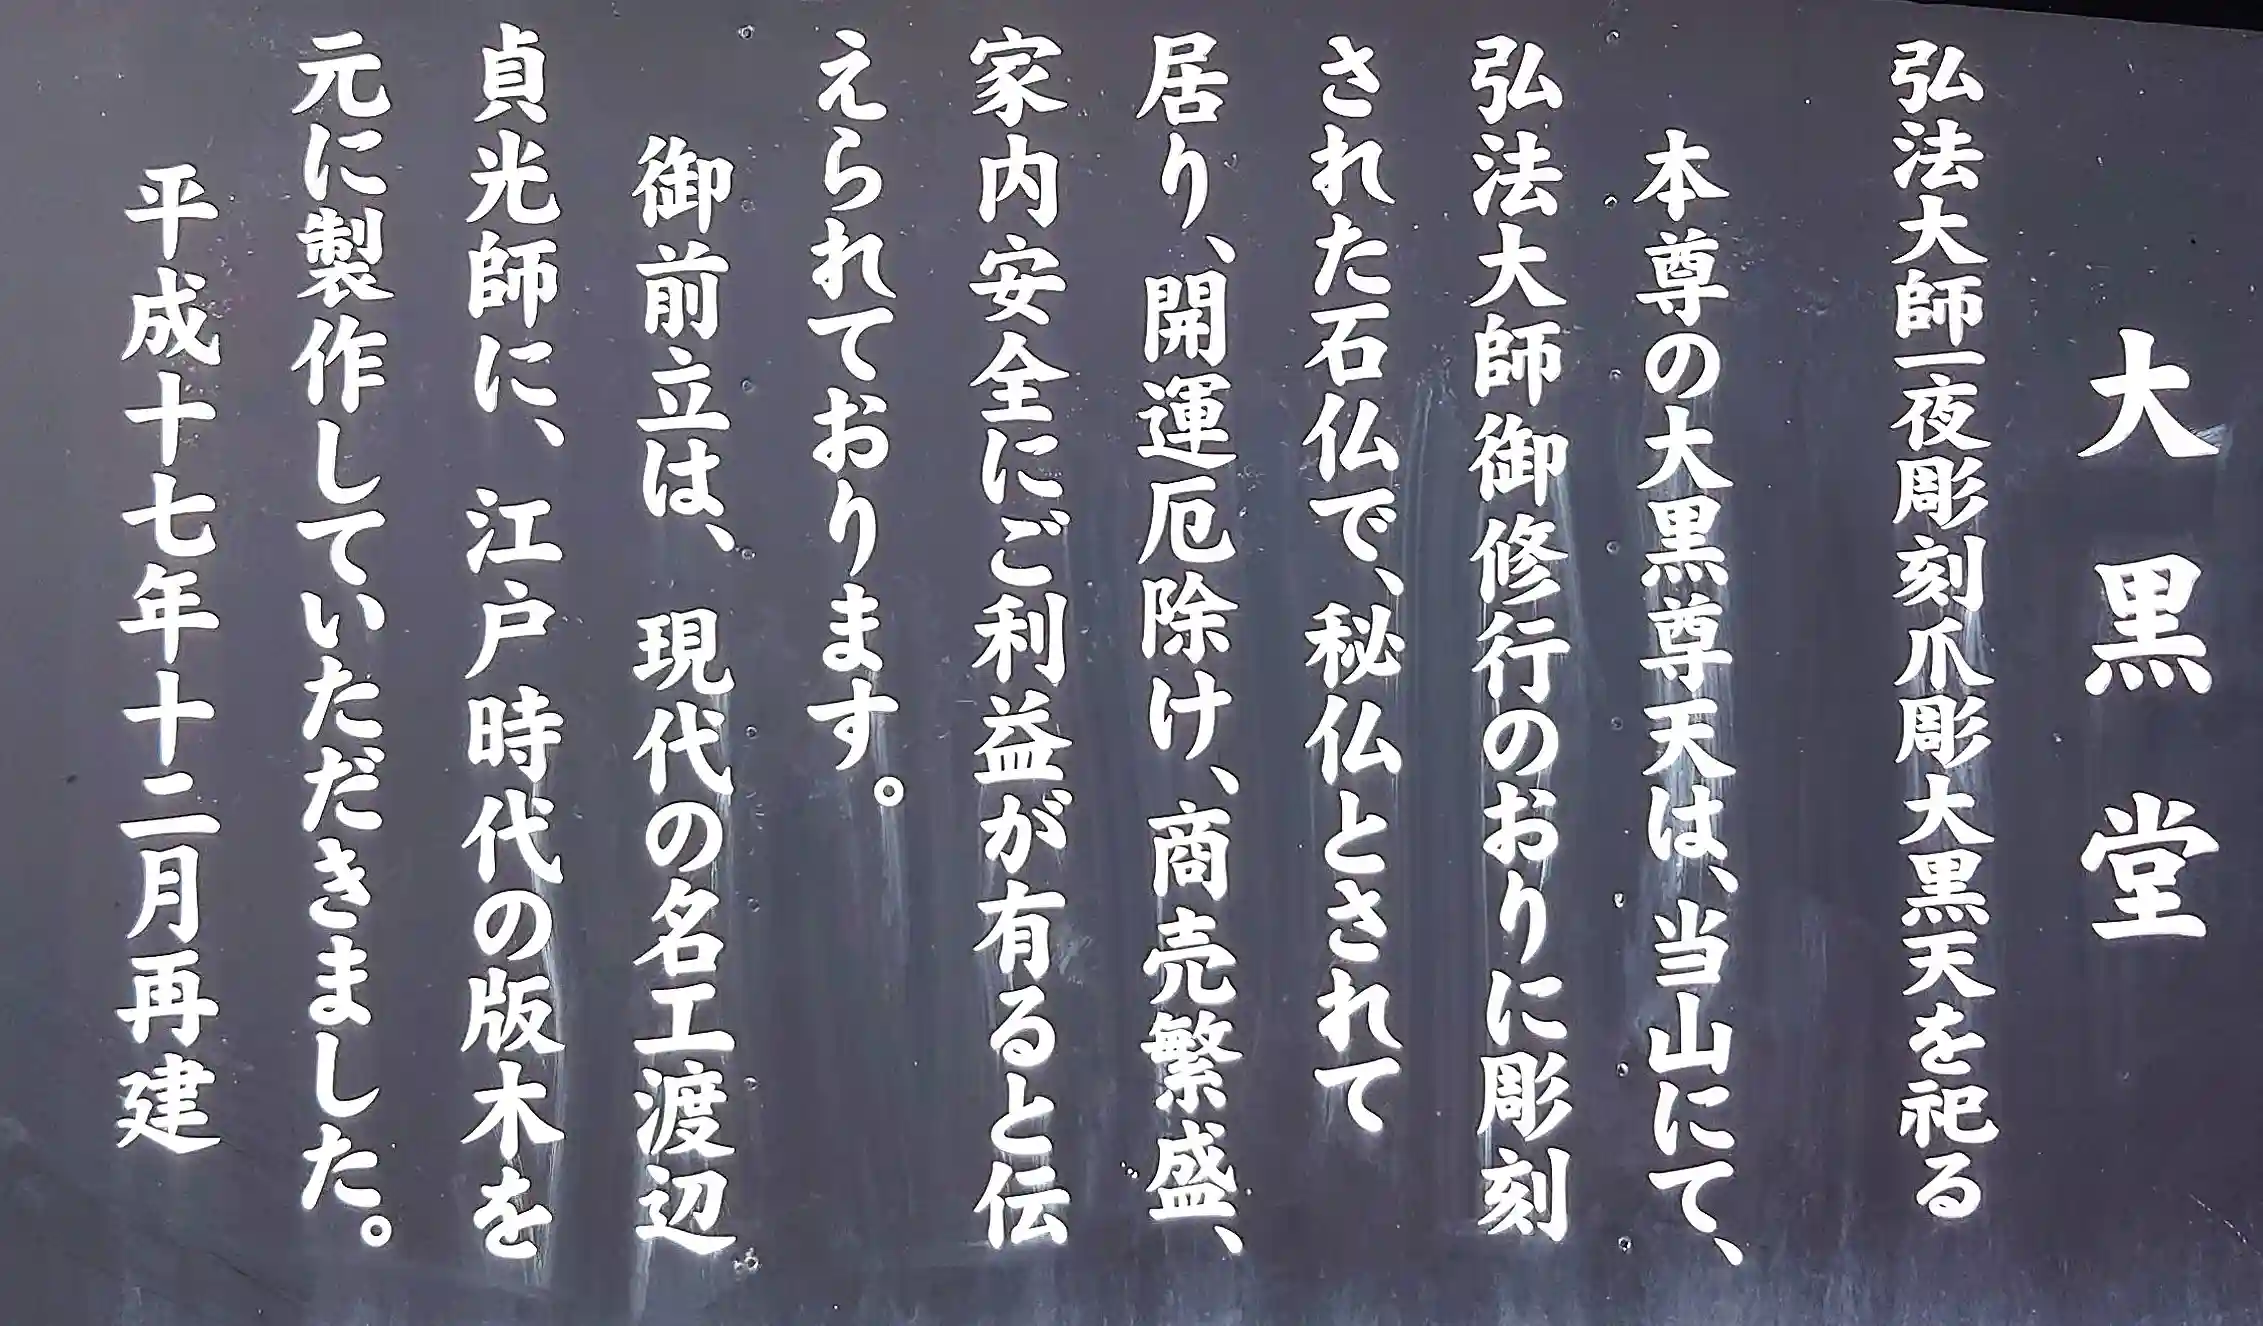 大黒堂
弘法大師一夜彫刻爪彫大黒天を祀る
本尊の大黒尊天は、当山にて、
弘法大師御修行のおりに彫刻
された石仏で、秘仏とされて
居り、開運厄除け、商売繁盛、
家内安全にご利益が有ると伝
えられております。
御前立は、現代の名工渡辺
貞光師に、江戸時代の版木を
元に製作していただきました。
平成十七年十二月再建